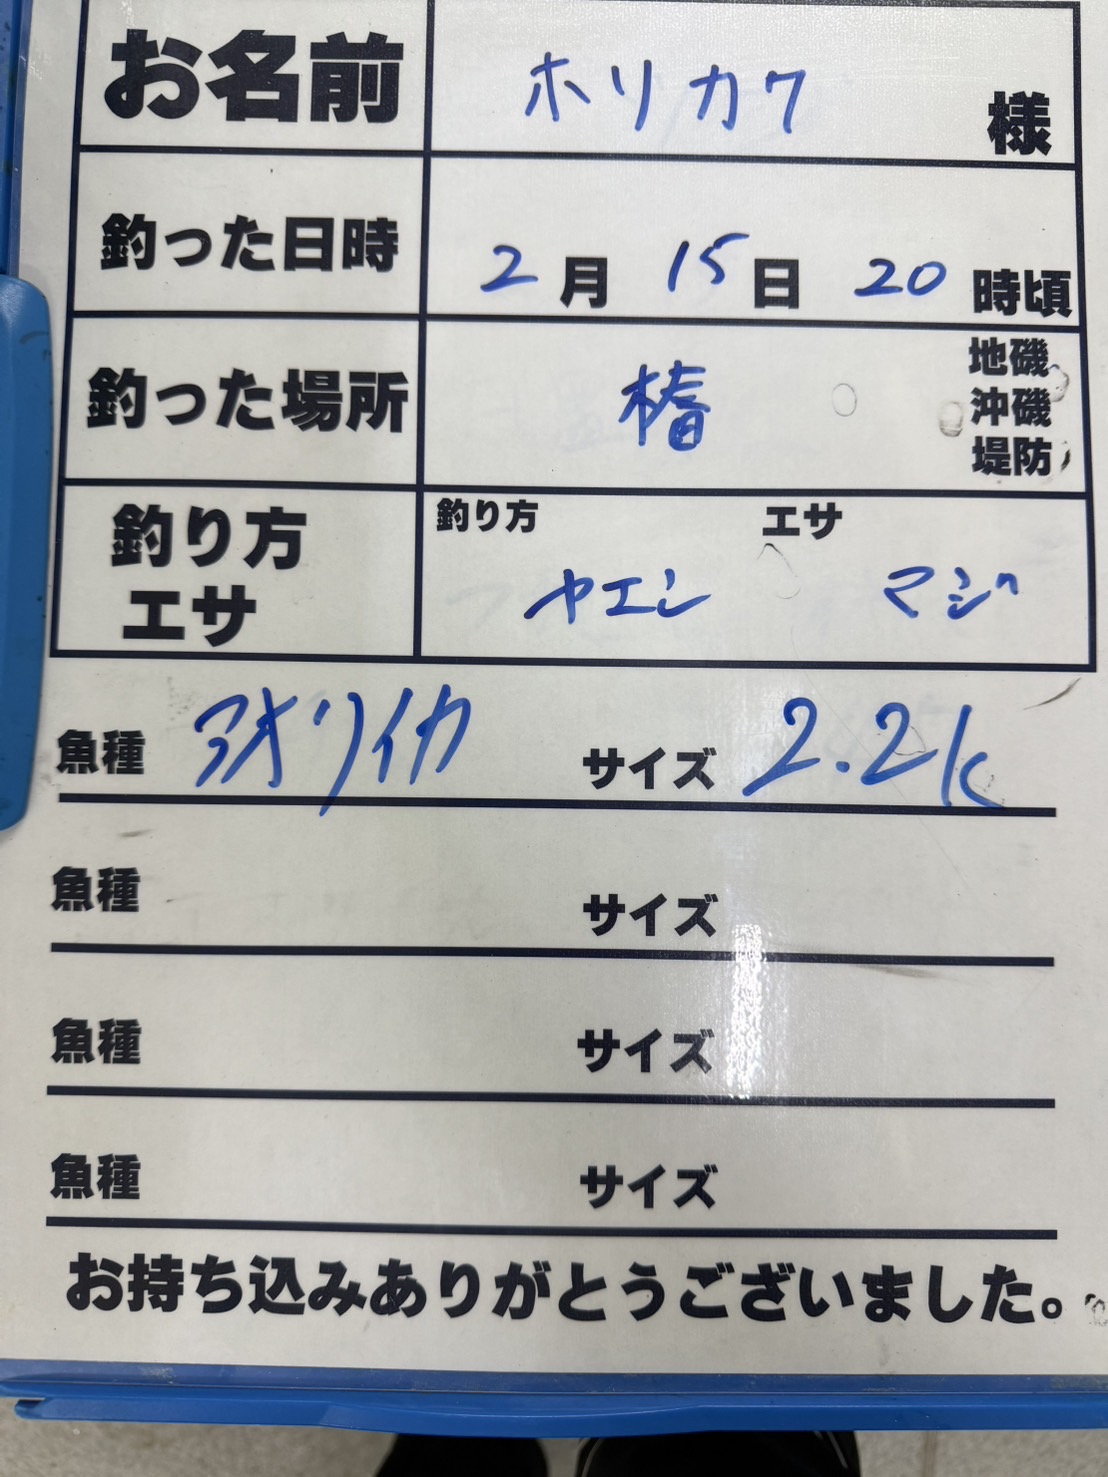 お名前 ホリカワ 様
釣った日時 2月 15日 20時頃
釣った場所 椿 地磯
沖磯
堤防
釣り方 エサ
釣り方 ヤエン エサ マジ
魚種 アオリイカ サイズ 2.2k
魚種 サイズ
魚種 サイズ
魚種 サイズ
お持ち込みありがとうございました。